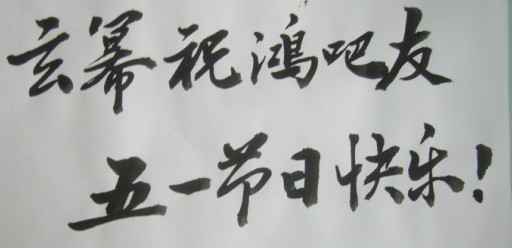 云幕祝鸿吧友
五一节日快乐！